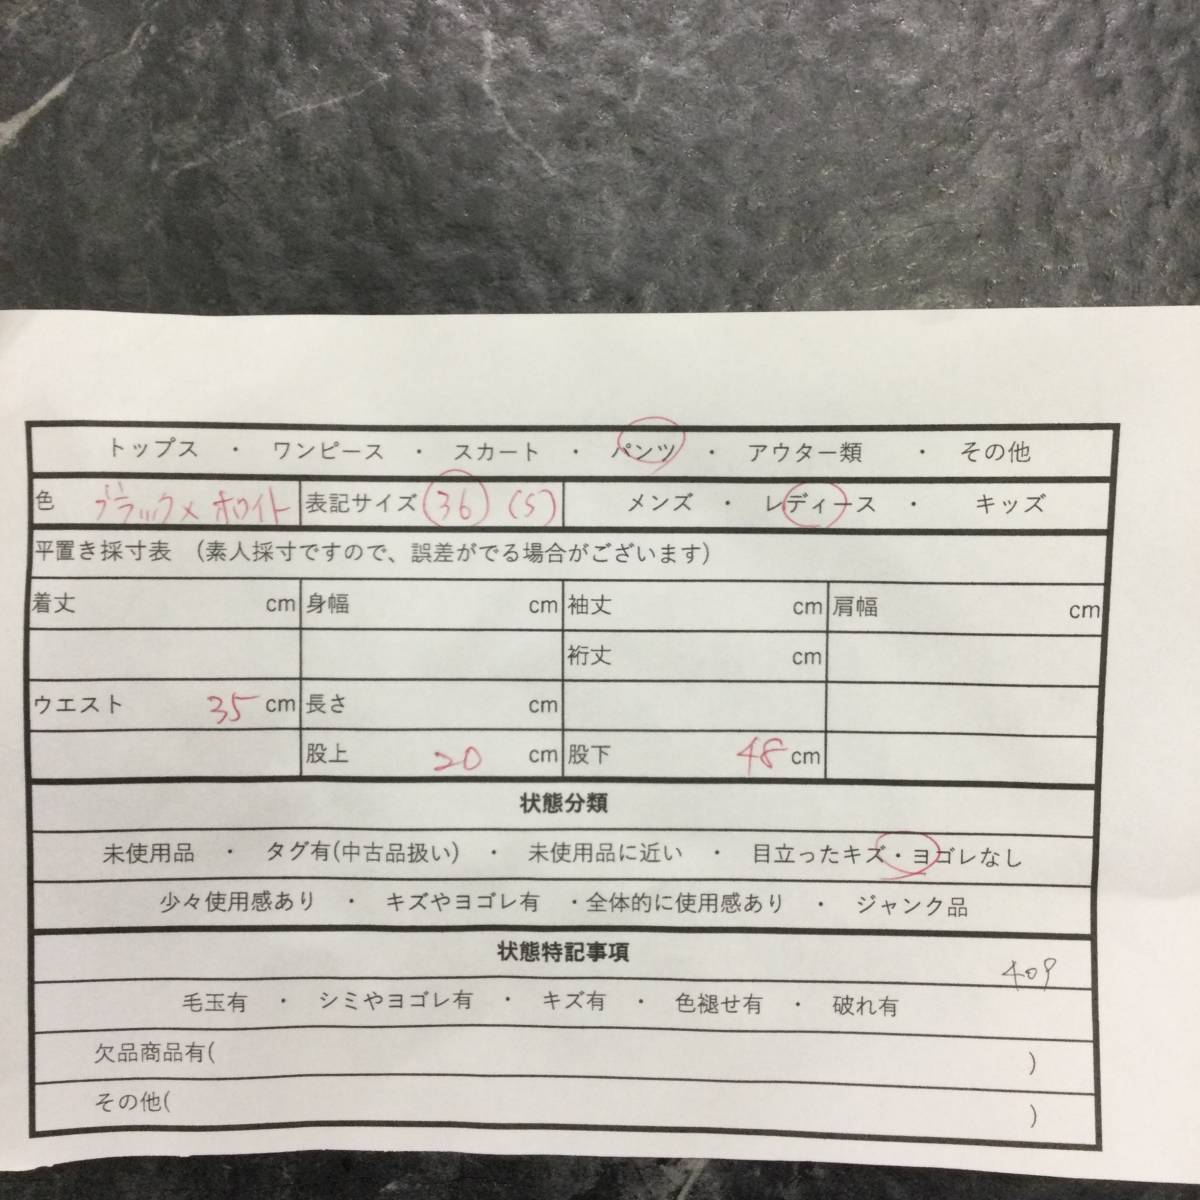 トップス ・ ワンピース ・ スカート ・ パンツ ・ アウター類 ・ その他
色 ブラック×ホワイト 表記サイズ 36 (S) メンズ ・ レディース ・ キッズ
平置き採寸表 (素人採寸ですので、誤差がでる場合がございます)
着丈 cm 身幅 cm 袖丈 cm 肩幅 cm
裄丈 cm
ウエスト 35 cm 長さ cm
股上 20 cm 股下 48 cm
状態分類
未使用品 ・ タグ有(中古品扱い) ・ 未使用品に近い ・ 目立ったキズ・ヨゴレなし
少々使用感あり ・ キズやヨゴレ有 ・全体的に使用感あり ・ ジャンク品
状態特記事項
409
毛玉有 ・ シミやヨゴレ有 ・ キズ有 ・ 色褪せ有 ・ 破れ有
欠品商品有( )
その他( )